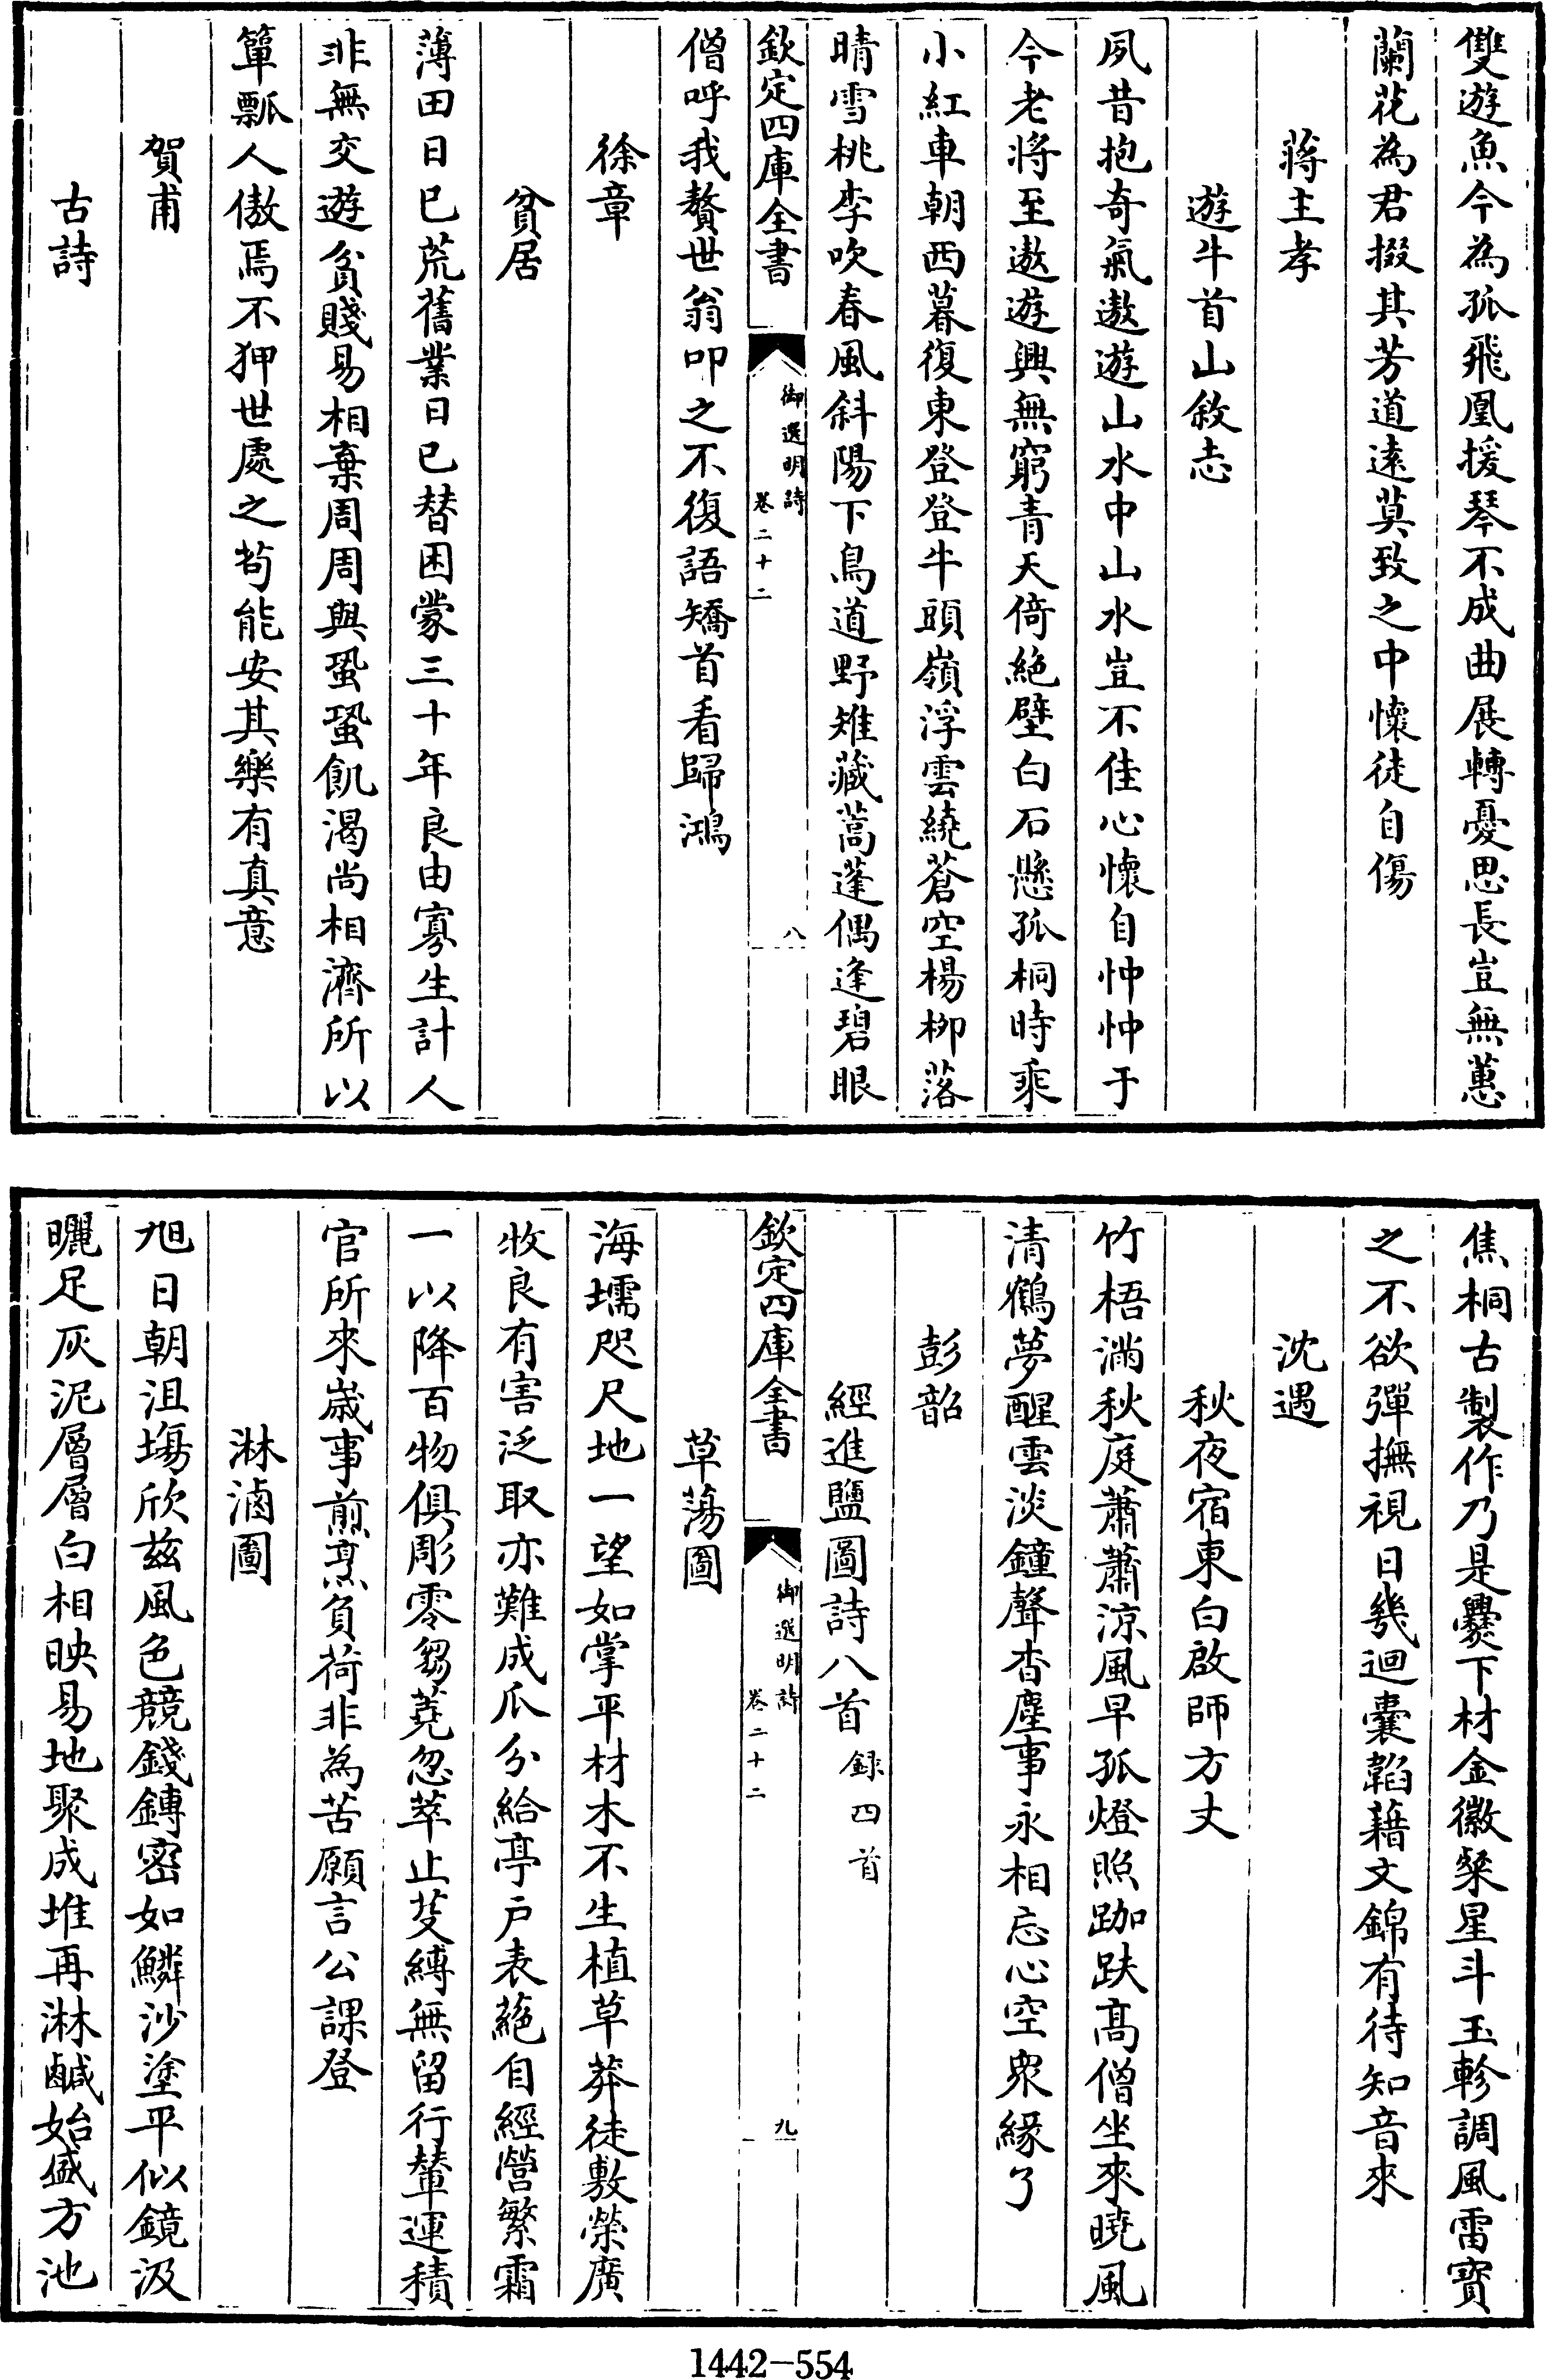 雙遊魚今為孤飛凰援琴不成曲展轉憂思長豈無蕙
蘭花為君掇其芳道遠莫致之中懷徒自傷
蔣主孝
遊牛首山敘志
夙昔抱奇氣遨遊山水中山水豈不佳心懷自忡忡于
今老將至遨遊興無窮青天倚絶壁白石懸孤桐時乘
小紅車朝西暮復東登登牛頭嶺浮雲繞蒼空楊柳落
晴雪桃李吹春風斜陽下鳥道野雉藏蒿蓬偶逢碧眼
欽定四庫全書
御選明詩
卷二十二
八
僧呼我贅世翁叩之不復語矯首看歸鴻
徐章
貧居
薄田日已荒舊業日已替困蒙三十年良由寡生計人
非無交遊貧賤易相棄周周與蛩蛩飢渴尚相濟所以
簞瓢人傲焉不狎世處之茍能安其樂有真意
賀甫
古詩
焦桐古製作乃是爨下材金徽粲星斗玉軫調風雷寶
之不欲彈撫視日幾迴囊韜藉文錦有待知音來
沈遇
秋夜宿東白啟師方丈
竹梧滿秋庭蕭蕭涼風早孤燈照跏趺高僧坐來曉風
清鶴夢醒雲淡鐘聲杳塵事永相忘心空眾緣了
彭韶
經進鹽圖詩八首 録四首
欽定四庫全書
御選明詩
卷二十二
九
草蕩圖
海壖咫尺地一望如掌平材木不生植草莽徒敷榮廣
收良有害泛取亦難成瓜分給亭户表蕝自經營繁霜
一以降百物俱彫零芻蕘忽萃止芟縛無留行輦運積
官所來嵗事煎烹負荷非為苦願言公課登
淋滷圖
旭日朝沮塲欣兹風色競錢鎛密如鱗沙塗平似鏡汲
曬足灰泥層層白相映易地聚成堆再淋鹹始盛方池
1442-554